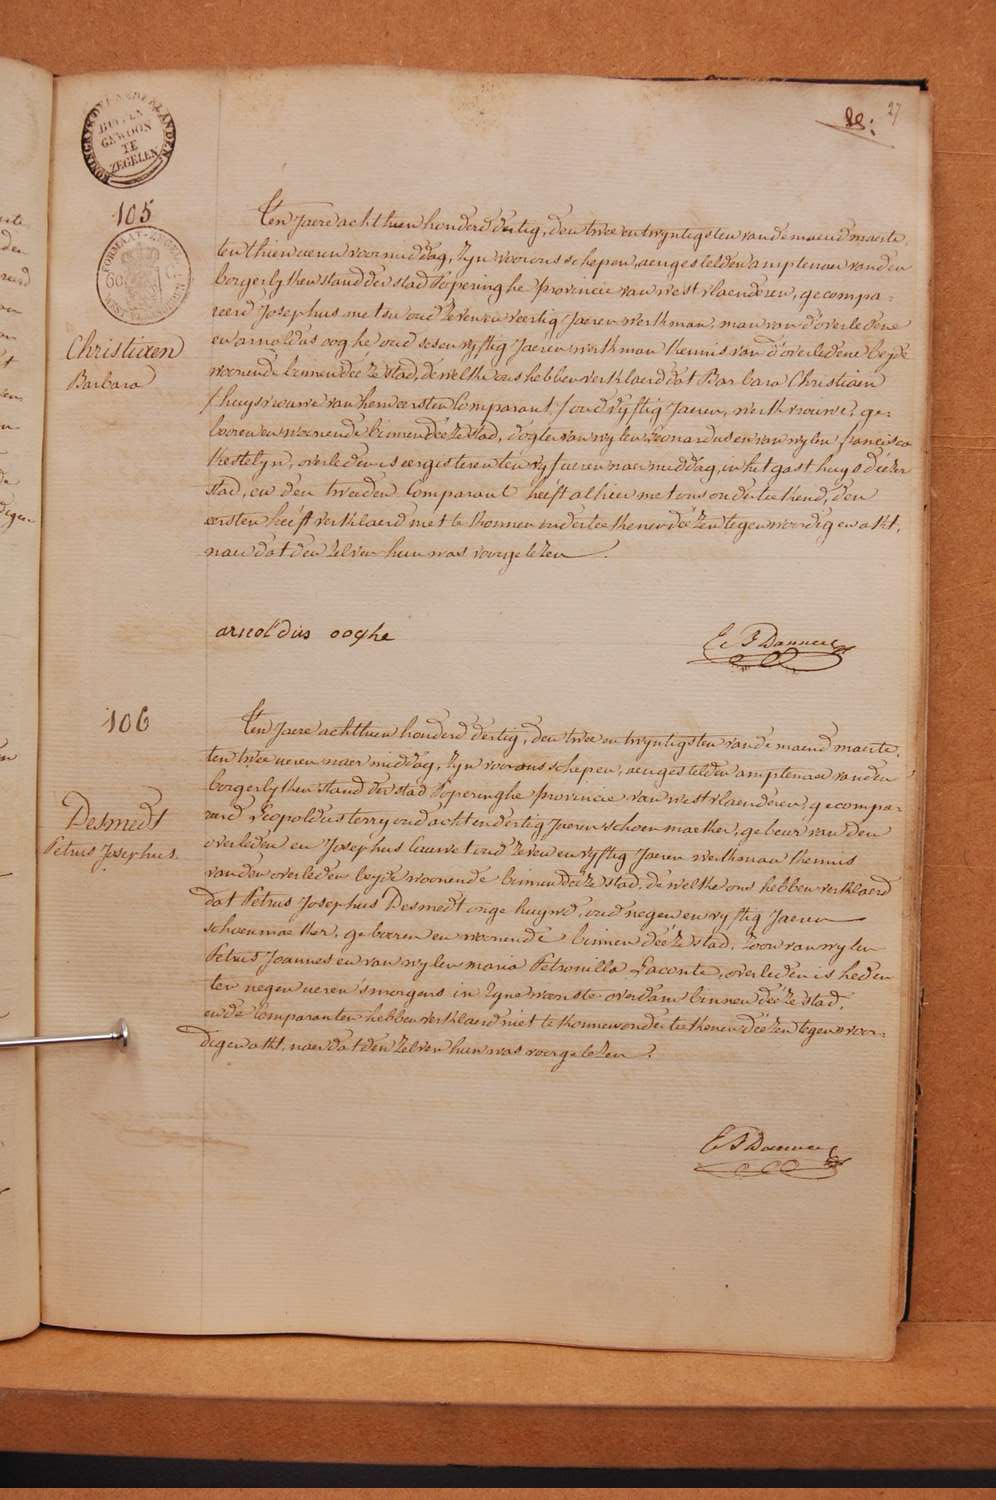 27
KONINGRYK DER NEDERLANDEN
BUITEN
GEWOON
TE
ZEGELEN
105
FORMAAT-ZEGEL
60
Christiaen
Barbara
Ten Jaere achtthien honderd dertig, den twee en twyntigsten van de maend maerte,
ten thien ueren voormiddag, zyn voor ons schepen, aengestelden amptenaer van den
borgerlyken stand der stad Poperinghe provincie van westvlaenderen, gecompa-
reerd Josephus metsu oud zeven en veertig Jaeren werkman, man van d'overledene
en arnoldus ooghe oud sesen vyftig Jaeren werkman kennis van d'overledene beyde
woonende binnen déeze stad, de welke ons hebben verklaerd dat Barbara Christiaen
/huysvrouwe van hem eersten Comparant/ oud vyftig Jaeren, werkvrouwe, ge-
boren en woonende binnen déeze stad, dogter van wylen Leonardus en van wylen francisca
Kestelyn, overleden is eergisteren ten vyf ueren naermiddag, in het gasthuys déezer
stad, en den tweeden Comparant heeft alhier met ons onderteekend, den
eersten heeft verklaerd niet te konnen onderteekenen déezen tegenwoordigen akt,
naer dat den zelven hun was voorgelezen.
arnoldus ooghe
106
Desmedt
Petrus Josephus.
Ten Jaere achtthien honderd dertig, den twee en twyntigsten van de maend maerte,
ten twee ueren naermiddag, zyn voor ons schepen, aengestelden amptenaer van den
borgerlyken stand der stad Poperinghe provincie van westvlaenderen, gecompa-
reerd Leopoldus terry oud acht en dertig Jaeren schoenmaeker, gebeur van den
overleden en Josephus lauwet oud zeven en vyftig Jaeren werkman kennis
van den overleden beyde woonende binnen déeze stad, de welke ons hebben verklaerd
dat Petrus Josephus Desmedt ongehuywd, oud negen en vyftig Jaeren
schoenmaeker, geboren en woonende binnen déeze stad, zoon van wylen
Petrus Joannes en van wylen maria Petronilla Laconte, overleden is heden
ten negen ueren smorgens in zyne woonste overdam binnen déeze stad.
en de Comparanten hebben verklaerd niet te konnen onderteekenen déezen tegenwoor-
digen akt, naer dat den zelven hun was voorgelezen.